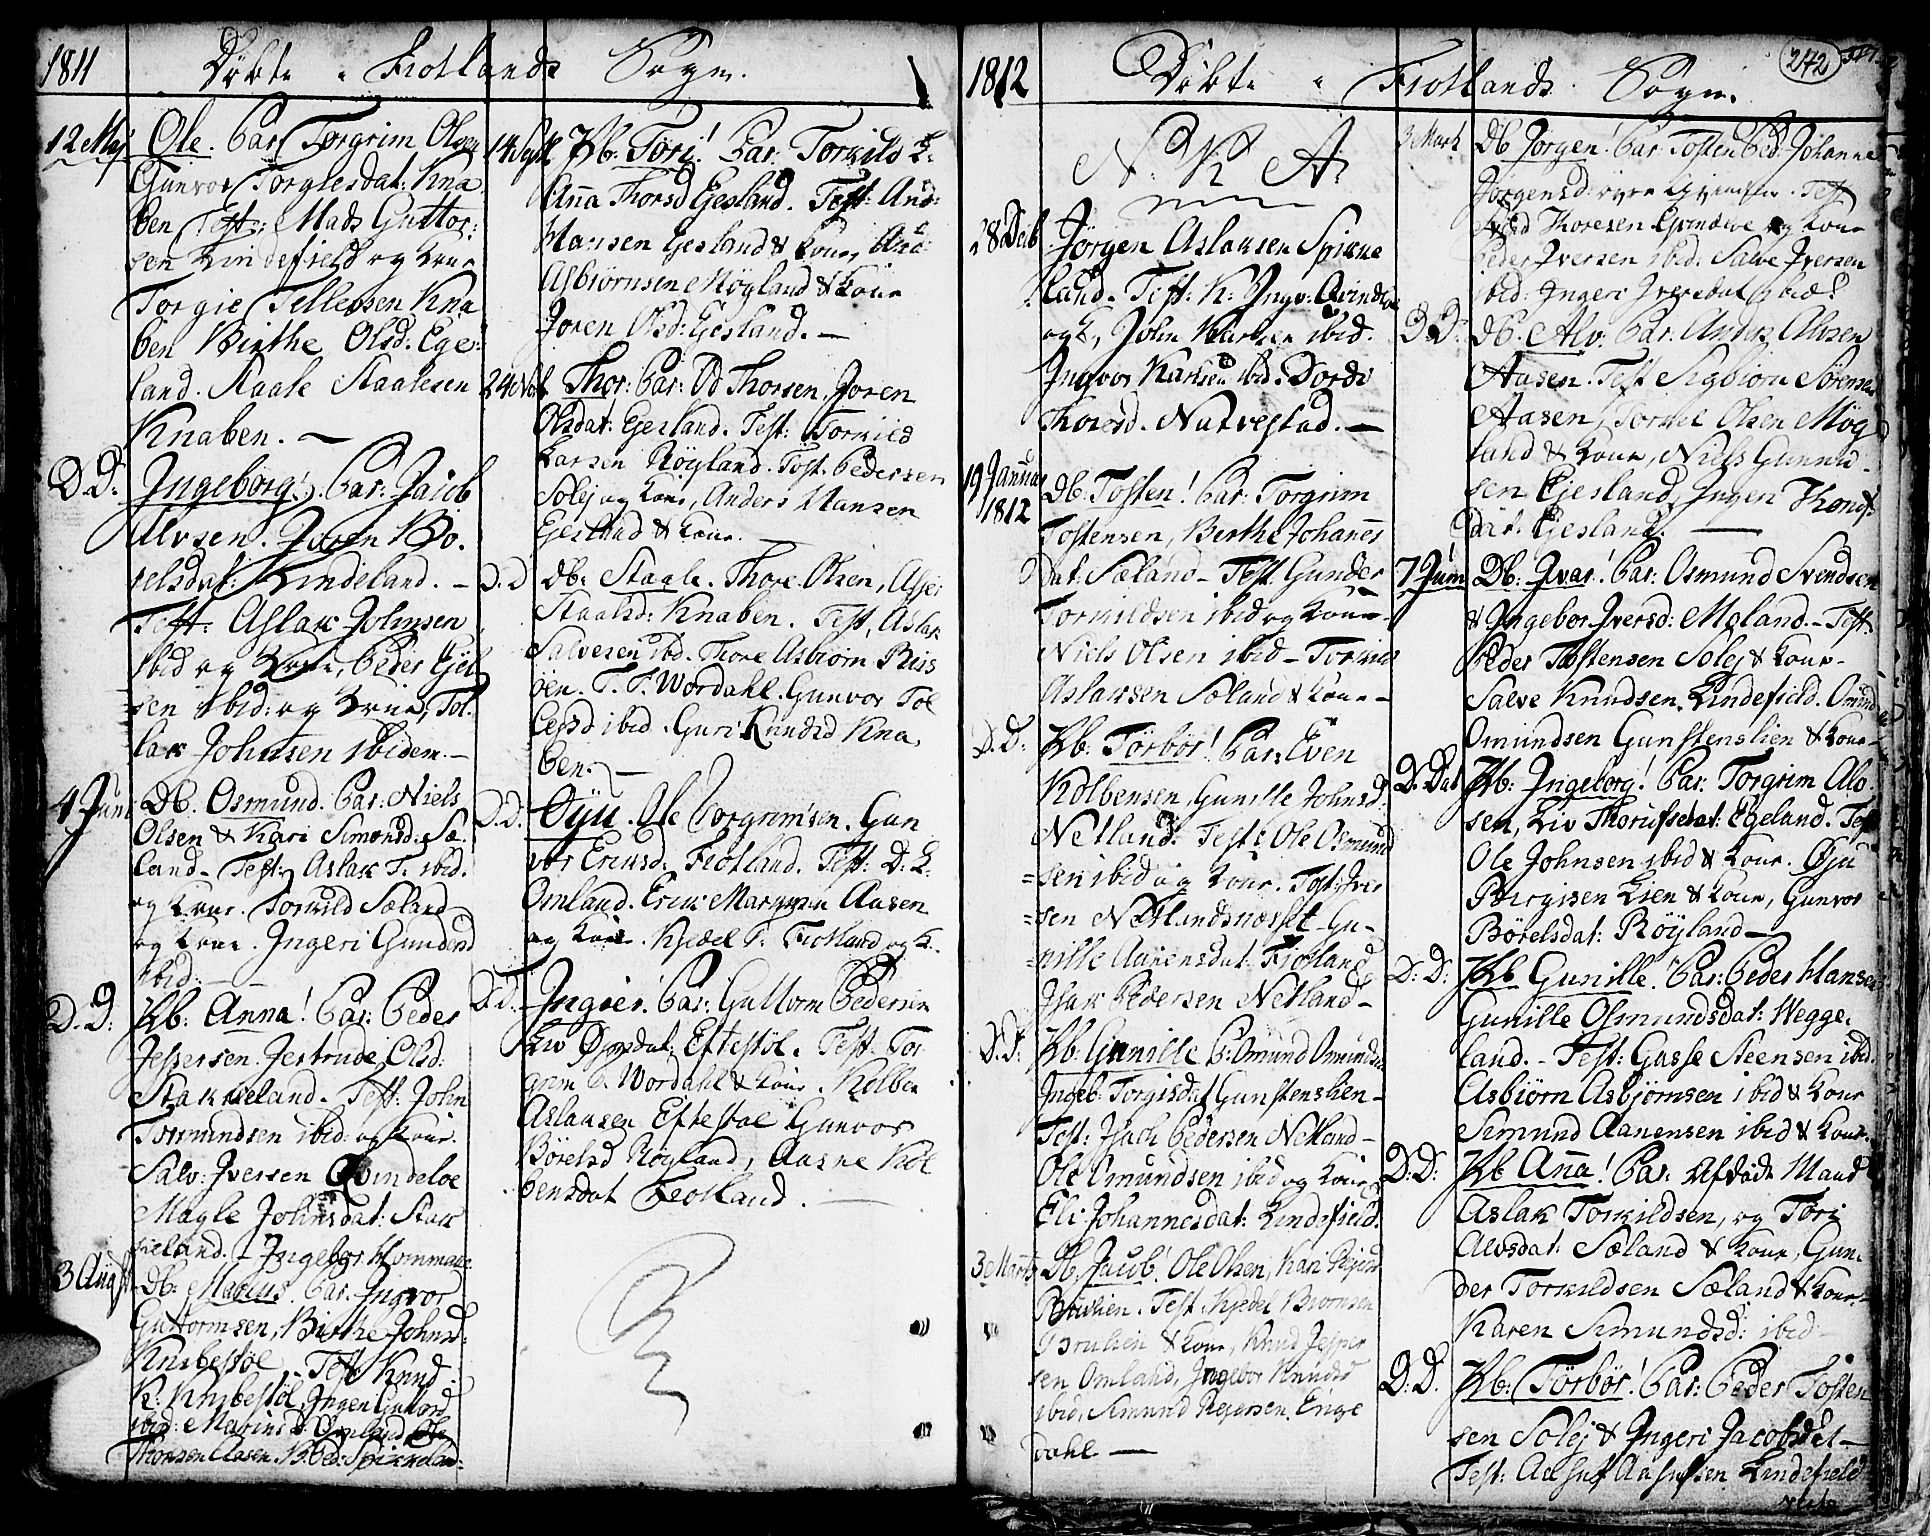 1811 Döbte i Fiotlands Sogn.
12 Maj Ole. Par. Torgrim Olsen
Gunvor Torgiesdat: Kna
ben Test: Mads Guttor:
sen Lindefield og Kone
Torgie Tellefsen Kna
ben Birthe Olsd. Ege:
land. Staale Staalesen
Knaben. —
D. D. Ingeborg! Par: Jacob
Alvsen. Joren Bo.
relsdat: Lindeland. —
Test: Aslak Johnsen
ibid og Kone, Peder Gjel
sen ibid: og Kone, Tol
lak Johnsen ibidem. —
4 Juni Db: Osmund. Par: Niels
Olsen & Kari Simonsd. Sæ
land. Test: Aslak T. ibid.
og Kone. Torkild Sæland
og Kone. Ingeri Gundersd
ibid: —
D. D: Pb: Anna! Par: Peder
Jespersen. Jertrude Olsd:
Stakkeland. Test: John
Tormundsen ibid: og Kone.
Salv: Iversen Qvindeloe
Magle Johnsdat: Stak
keland. — Ingebor Homme
3 August Db: Marius Par. Ingvor
Guttormsen, Birthe Johnsd:
Knibestöl Test Knud
K: Knibestöl, Ingeri Guttord
ibid: Marius d: Omland
Thorsen Aasen. Spikkeland:
14 Sept Pb: Tori! Par: Torkild L:
Anna Thorsd Egesland. Test: And:
Hansen Gesland & Kone, And:
Asbiørnsen Møgland & Kone
Joren Olsd: Egesland. —
24 Nov Thor: Par: Od Thorsen, Joren
Olsdat: Egesland. Test: Torkild
Larsen Röyland. Tost. Pedersen
Solej og Kone, Anders Hansen
Egesland & Kone.
D. D. Db: Staale. Thore Olsen, Asse
Staalsd: Knaben. Test, Aslak
Salvesen ibd. Thore Asbiørn Riis
sen. T. T. Wordahl. Gunvor Tol
lefsd ibid. Guri Knudsd Kna,
ben. —
D. D. Oyu. Ole Torgrimsen. Gun
vor Eriksd: Fiotland. Test: D: L:
Omland. Erik Aasen
og Kone. Kjedel T: Fiotland og K.
D. D. Ingier. Par: Guttorm Pedersen
Liv Øyusdat: Eftestöl. Test: Tor
grim T. Wordahl & Kone. Kolben
Aslaksen Eftestöl Gunvor
Börelsd Röyland, Aasne Kol
bensdat Fiotland. —
1812 Döbte i Fiotlands Sogn. 242
N. K. A.
28 Decb Jörgen Aslaksen Spikke
land. Test: K: Yngv: Qvindloe
og K, John Karlsen ibid.
Ingvor Karlsen ibid. Dorde
Thoresd. Natvestad. —
19 Januar 1812 Db: Tosten! Par: Torgrim
Tostensen, Berthe Johannes
dat: Sæland — Test. Gunder
Torkildsen ibid og Kone —
Niels Olsen ibid — Torkild
Aslaksen Sæland & Kone —
D. D: Pb: Törbör! Par: Even
Kolbensen, Gunille Johnsd:
Netland. Test: Ole Osmund
=sen ibid og Kone. Tost: Iver
=sen Netlandsnæsset Gu-
=nille Aanensdat Fiotland
Isak Pedersen Netland —
D: D: Pb: Gunille P: Omund Omundsen
Ingeb: Torgisdat Gunstenslien —
Test: Isach Pedersen Netland —
Ole Omundsen ibid og Kone
Eli Johannesdat: Lindefield.
3 Martz Db. Jacob! Ole Olsen, Kari
Bruslien. Test. Kjedel Biornsen
Bruslien & Kone, Knud Jesper
sen Omland, Ingebor Knudsd
ibid, Simund Rejersen. Erige
dahl —
3 Mart Db Jorgen! Par: Tosten Ped: Johanne
Jørgensd: øvre Qvindloe. Test
Thoresen Qvindloe og Kone
Peder Iversen ibid. Salve Iversen
ibid: Ingeri Iversdat ibid!
D: D: Db: Alv: Par: Anders Alvsen
Aasen. Test Sigbiorn Sørensen
Aasen, Torkel Olsen Møg
land & Kone, Niels Gunnu-
sen Egesland, Ingen
dat: Egesland. —
7 Juni Db: Ivar! Par: Osmund Svendsen
& Ingebor Iversd: Moland. — Test:
Peder Tostensen Solej & Kone —
Salve Knudsen Lindefield. Omund
Omundsen Gunstenslien & Kone —
D. Dat Pb: Ingeborg! Par: Torgrim Alo
sen, Liv Egeland. Test
Ole Johnsen ibid & Kone. Øju
Birgisen Lien & Kone, Gunvor
Börelsdat: Röyland —
D: D: Pb Gunille. Par: Peder Hansen
Gunille Osmundsdat: Hegge.
land. — Test: Gasse Steensen ibid.
Asbiörn Asbjørnsen ibid & Kone
Simund Aanensen ibid & Kone.
D: D: Pb Anna! Par: Afdøde Mand
Aslak Torkildsen, og Tori
Alvsdat: Sæland & Kone, Gun.
der Torkildsen Sæland & Kone.
Karen Simundsd: ibid —
D: D. Pb: Törbör! Par: Peder Tosten
sen Solej & Ingeri Jacobsdat —
Test: Lindefield